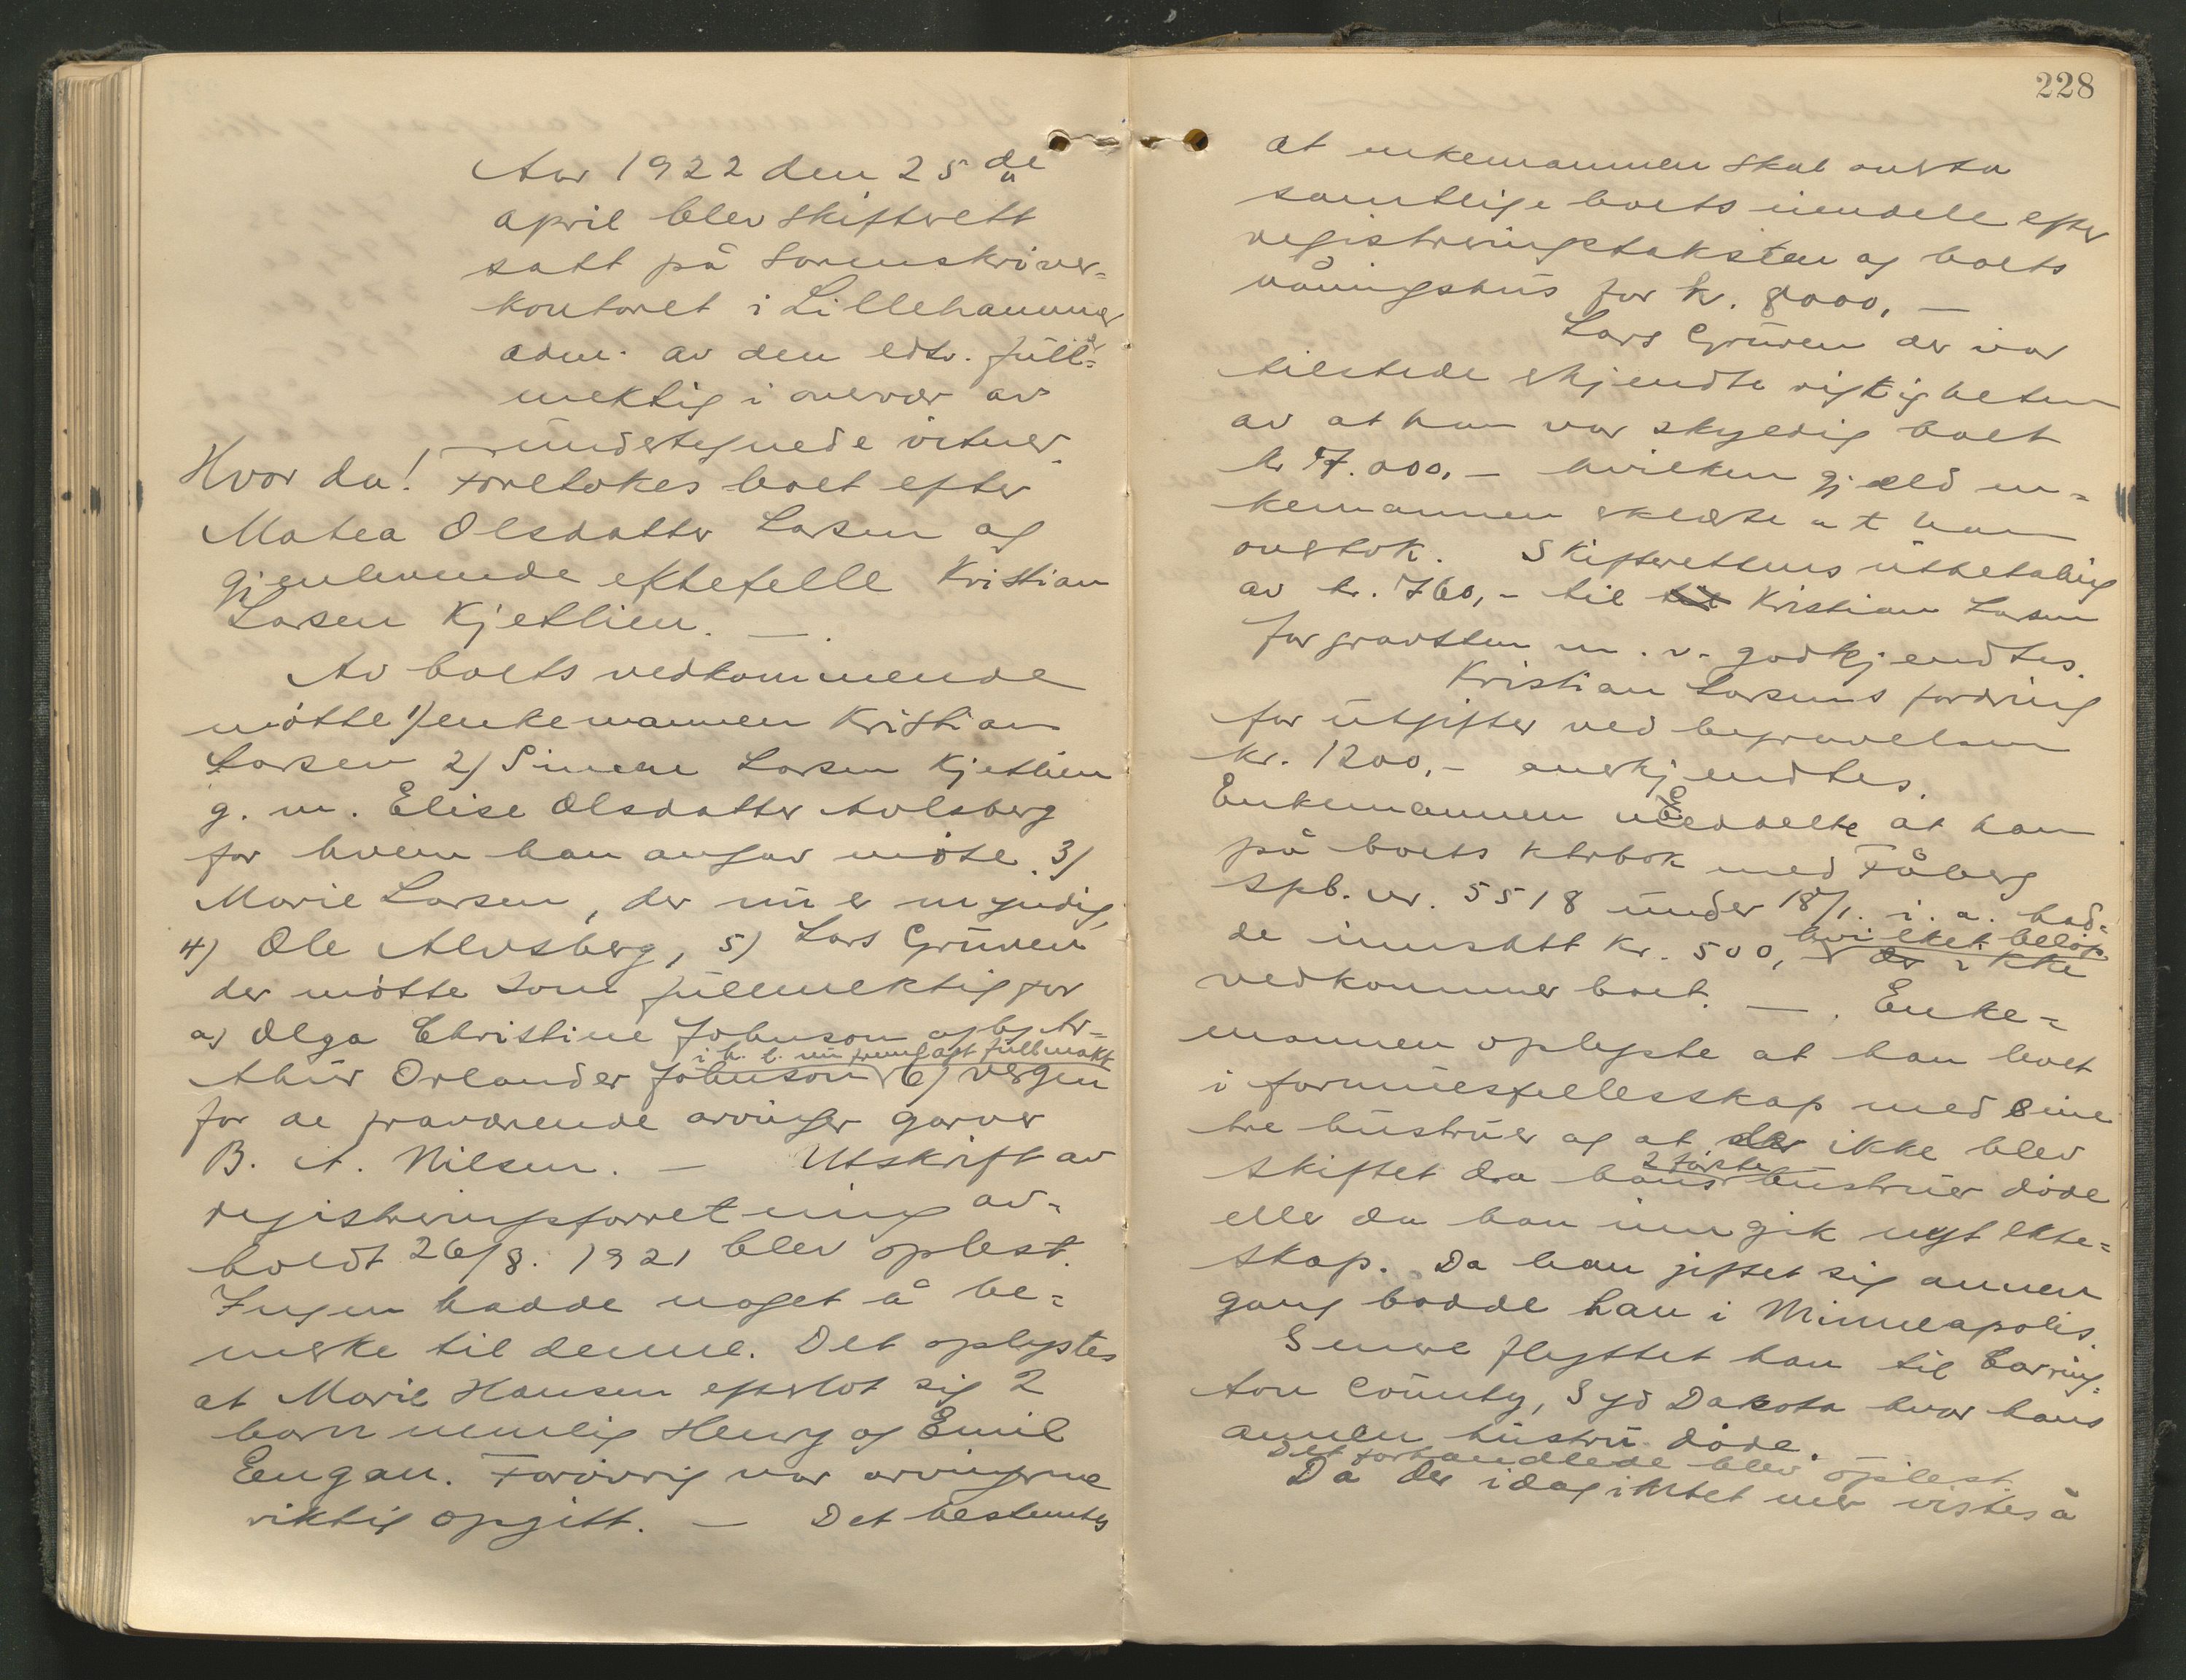 Aar 1922 den 25 de
april blev skifterett
satt på Sorenskriver=
kontoret i Lillehammer
adm. av den edsv. full=
mektig i overvær av
undertegnede vitner.
Hvor da! Foretokes boet efter
Matea Olsdatter Larsen og
gjenlevende ektefelle Kristian
Larsen Kjetlien. —.
Av boets vedkommende
møtte 1) enkemannen Kristian
Larsen 2) Simen Larsen Kjetlien
g. m. Elise Olsdatter Avlsberg
for hvem han angav møte. 3)
Marie Larsen, der nu er myndig,
4) Ole Alvsberg, 5) Lars Gruven
der møtte som fullmektig for
a) Olga Christine Johnson og b) Ar-
i h. t. nu fremlagt fullmakt
thur Orlander Johnson 6) vergen
for de fraværende arvinger garver
B. A. Nilsen. — Utskrift av
registreringsforretning av-
holdt 26/8. 1921 blev oplest.
Ingen hadde noget å be=
merke til denne. Det oplystes
at Marie Hansen efterlot sig 2
barn nemlig Henry og Emil
Engan. Forøvrig var arvingerne
riktig opgitt. — Det bestemtes
228
at enkemannen skal overta
samtlige boets eiendele efter
registreringstaksten og boets
våningshus for kr. 8000,—
Lars Gruven der var
tilstede erkjendte rigtigheten
av at han var skyldig boet
kr 7.000,— hvilken gjeld en=
kemannen erklærte at han
overtok. Skifterettens utbetaling
av kr. 760,- til Kristian Larsen
for gravsten m. v. godkjendtes.
Kristian Larsens fordring
for utgifter ved begravelsen
kr. 1200,- anerkjendtes.
Enkemannen meddelte at han
på boets ktrbok med Fåberg
spb. nr. 5518 under 18/1. i. a. had=
hvilket beløp
de innsatt kr. 500,- der ikke
vedkommer boet. —. Enke=
mannen oplyste at han levet
i formuesfellesskap med sine
tre hustruer og at der ikke blev
2 første
skiftet da hans hustruer døde
eller da han inngik nyt ekte=
skap. Da han giftet sig annen
gang bodde han i Minneapolis.
Senere flyttet han til Carring=
ton County, Syd Dakota hvor hans
annen hustru døde.
Det forhandlede blev oplest.
Da der idag intet mer vistes å